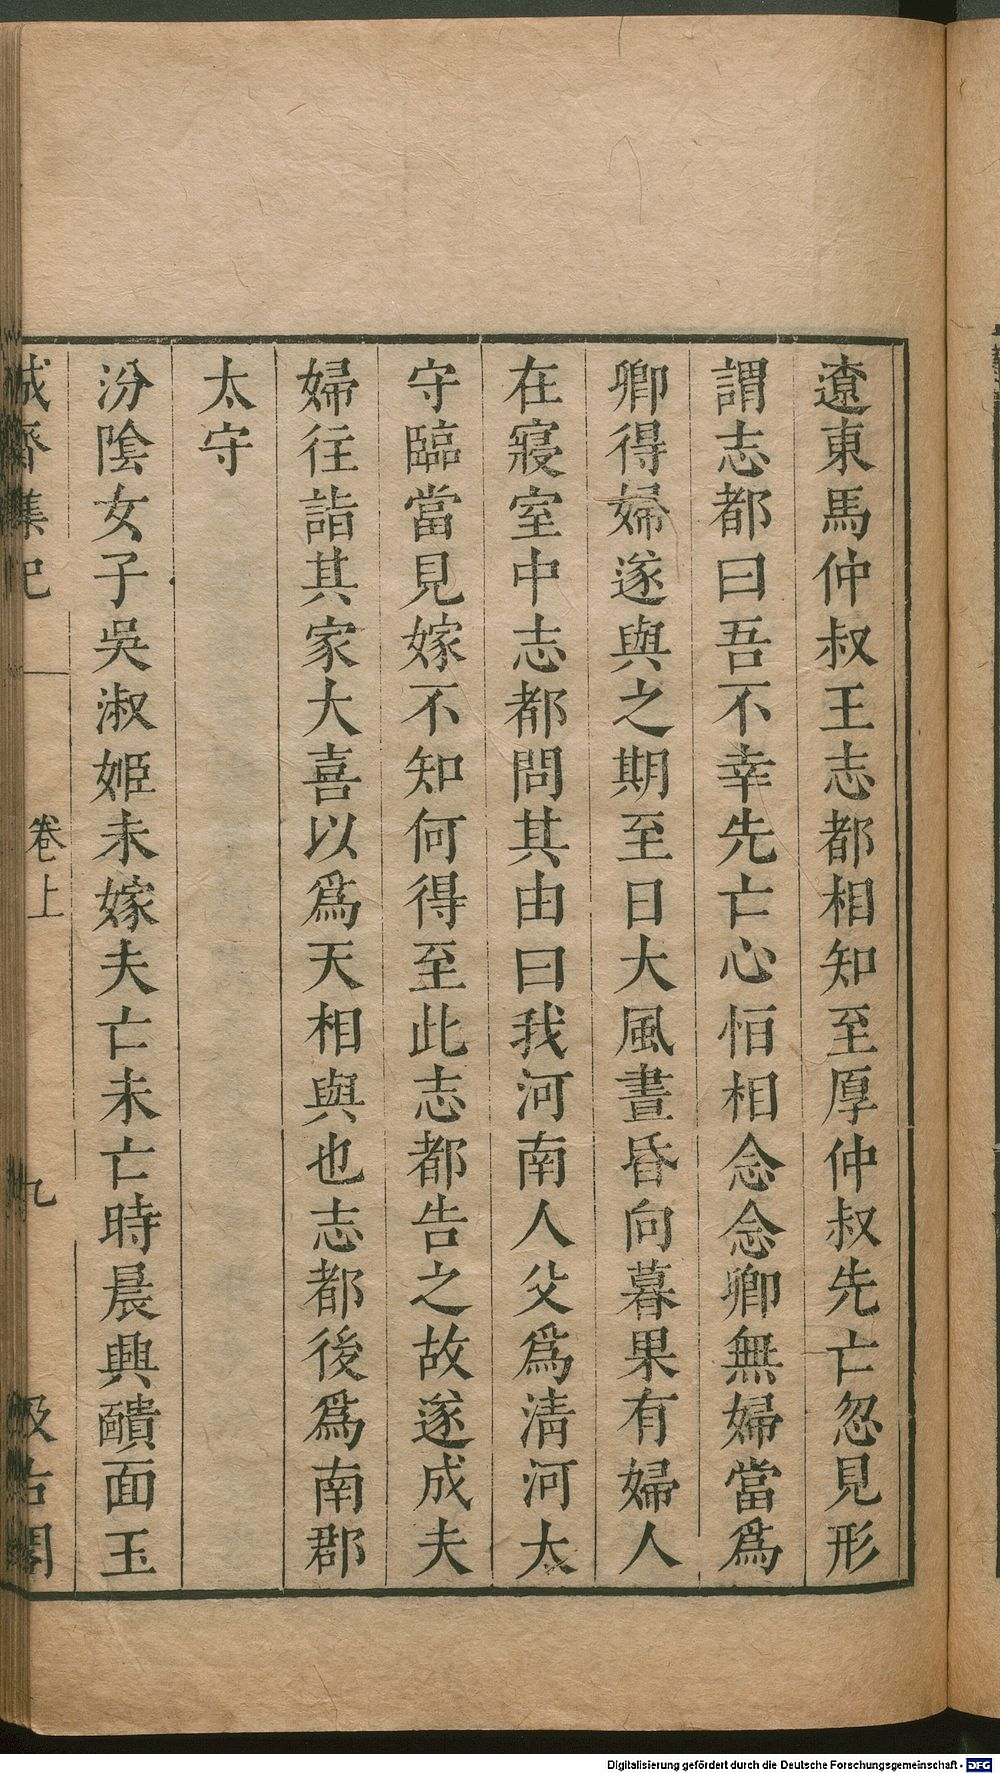 遼東馬仲叔王志都相知至厚仲叔先亡忽見形
謂志都曰吾不幸先亡心恒相念念卿無婦當爲
卿得婦遂與之期至日大風晝昏向暮果有婦人
在寢室中志都問其由曰我河南人父爲清河太
守臨當見嫁不知何得至此志都告之故遂成夫
婦往詣其家大喜以爲天相與也志都後爲南郡
太守
汾陰女子吳淑姬未嫁夫亡未亡時晨興靧面玉
誠齋集記 卷上 九 汲古閣
Digitalisierung gefördert durch die Deutsche Forschungsgemeinschaft - DFG